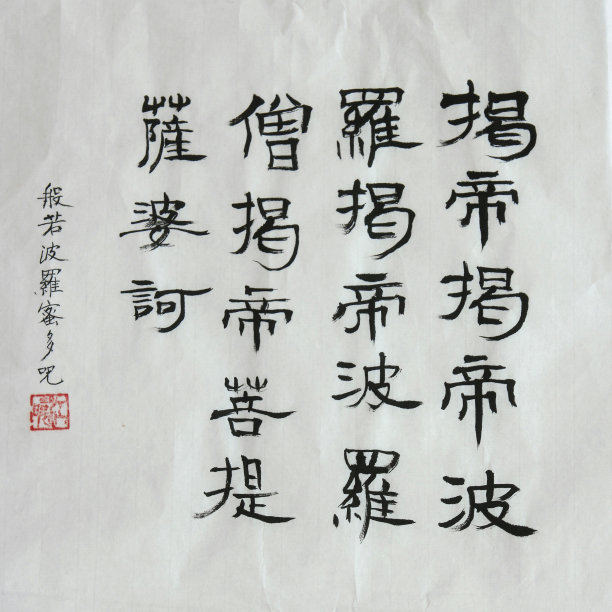 揭帝揭帝波
羅揭帝波羅
僧揭帝菩提
薩婆訶
般若波羅蜜多咒